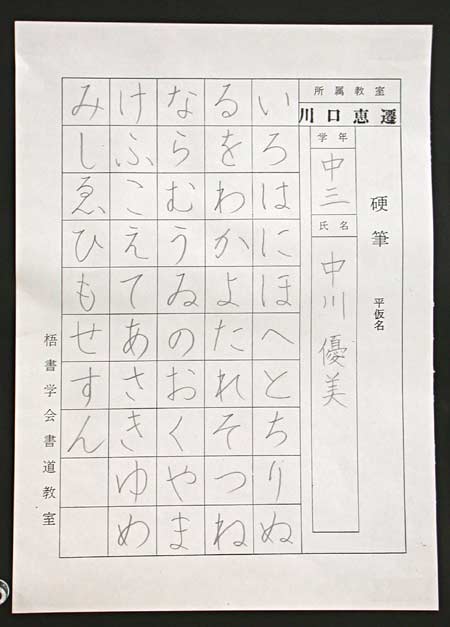 硬筆 平仮名
所属教室
川口恵遷
学年
中三
氏名
中川優美
いろはにほへとちりぬ
るをわかよたれそつね
ならむうゐのおくやま
けふこえてあさきゆめ
みしゑひもせすん
梧書学会書道教室